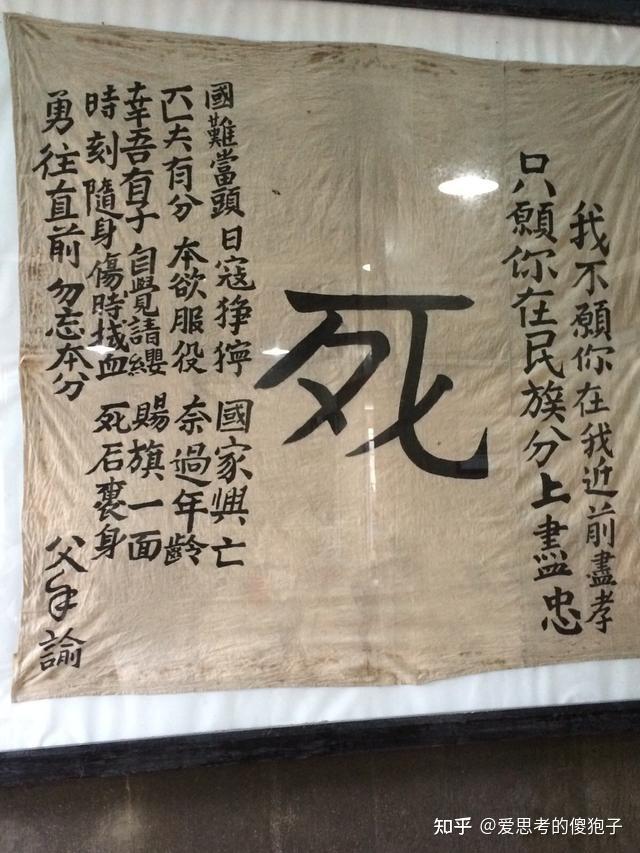 我不願你在我近前盡孝
只願你在民族分上盡忠
死
國難當頭 日寇猙獰 國家興亡
匹夫有分 本欲服役 奈過年齡
幸吾有子 自覺請纓 賜旗一面
時刻隨身 傷時拭血 死后裹身
勇往直前 勿忘本分
父手諭
知乎 @爱思考的傻狍子